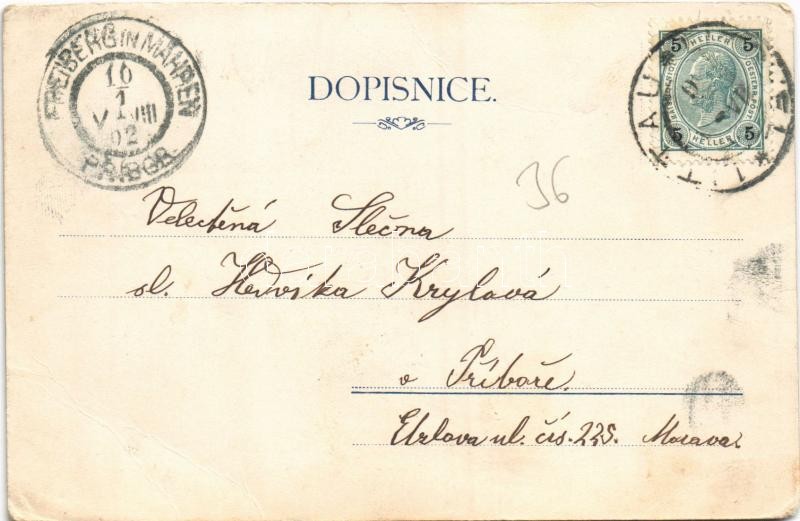 FREIBERG IN MÄHREN
16
1
VIII
02
PŘÍBOR
DOPISNICE.
5 HELLER 5
5 HELLER 5
LITTAU
36
Velectěná Slečna
sl. Hedvika Krylová
v Příboře.
ul. čís. 225. Morava.